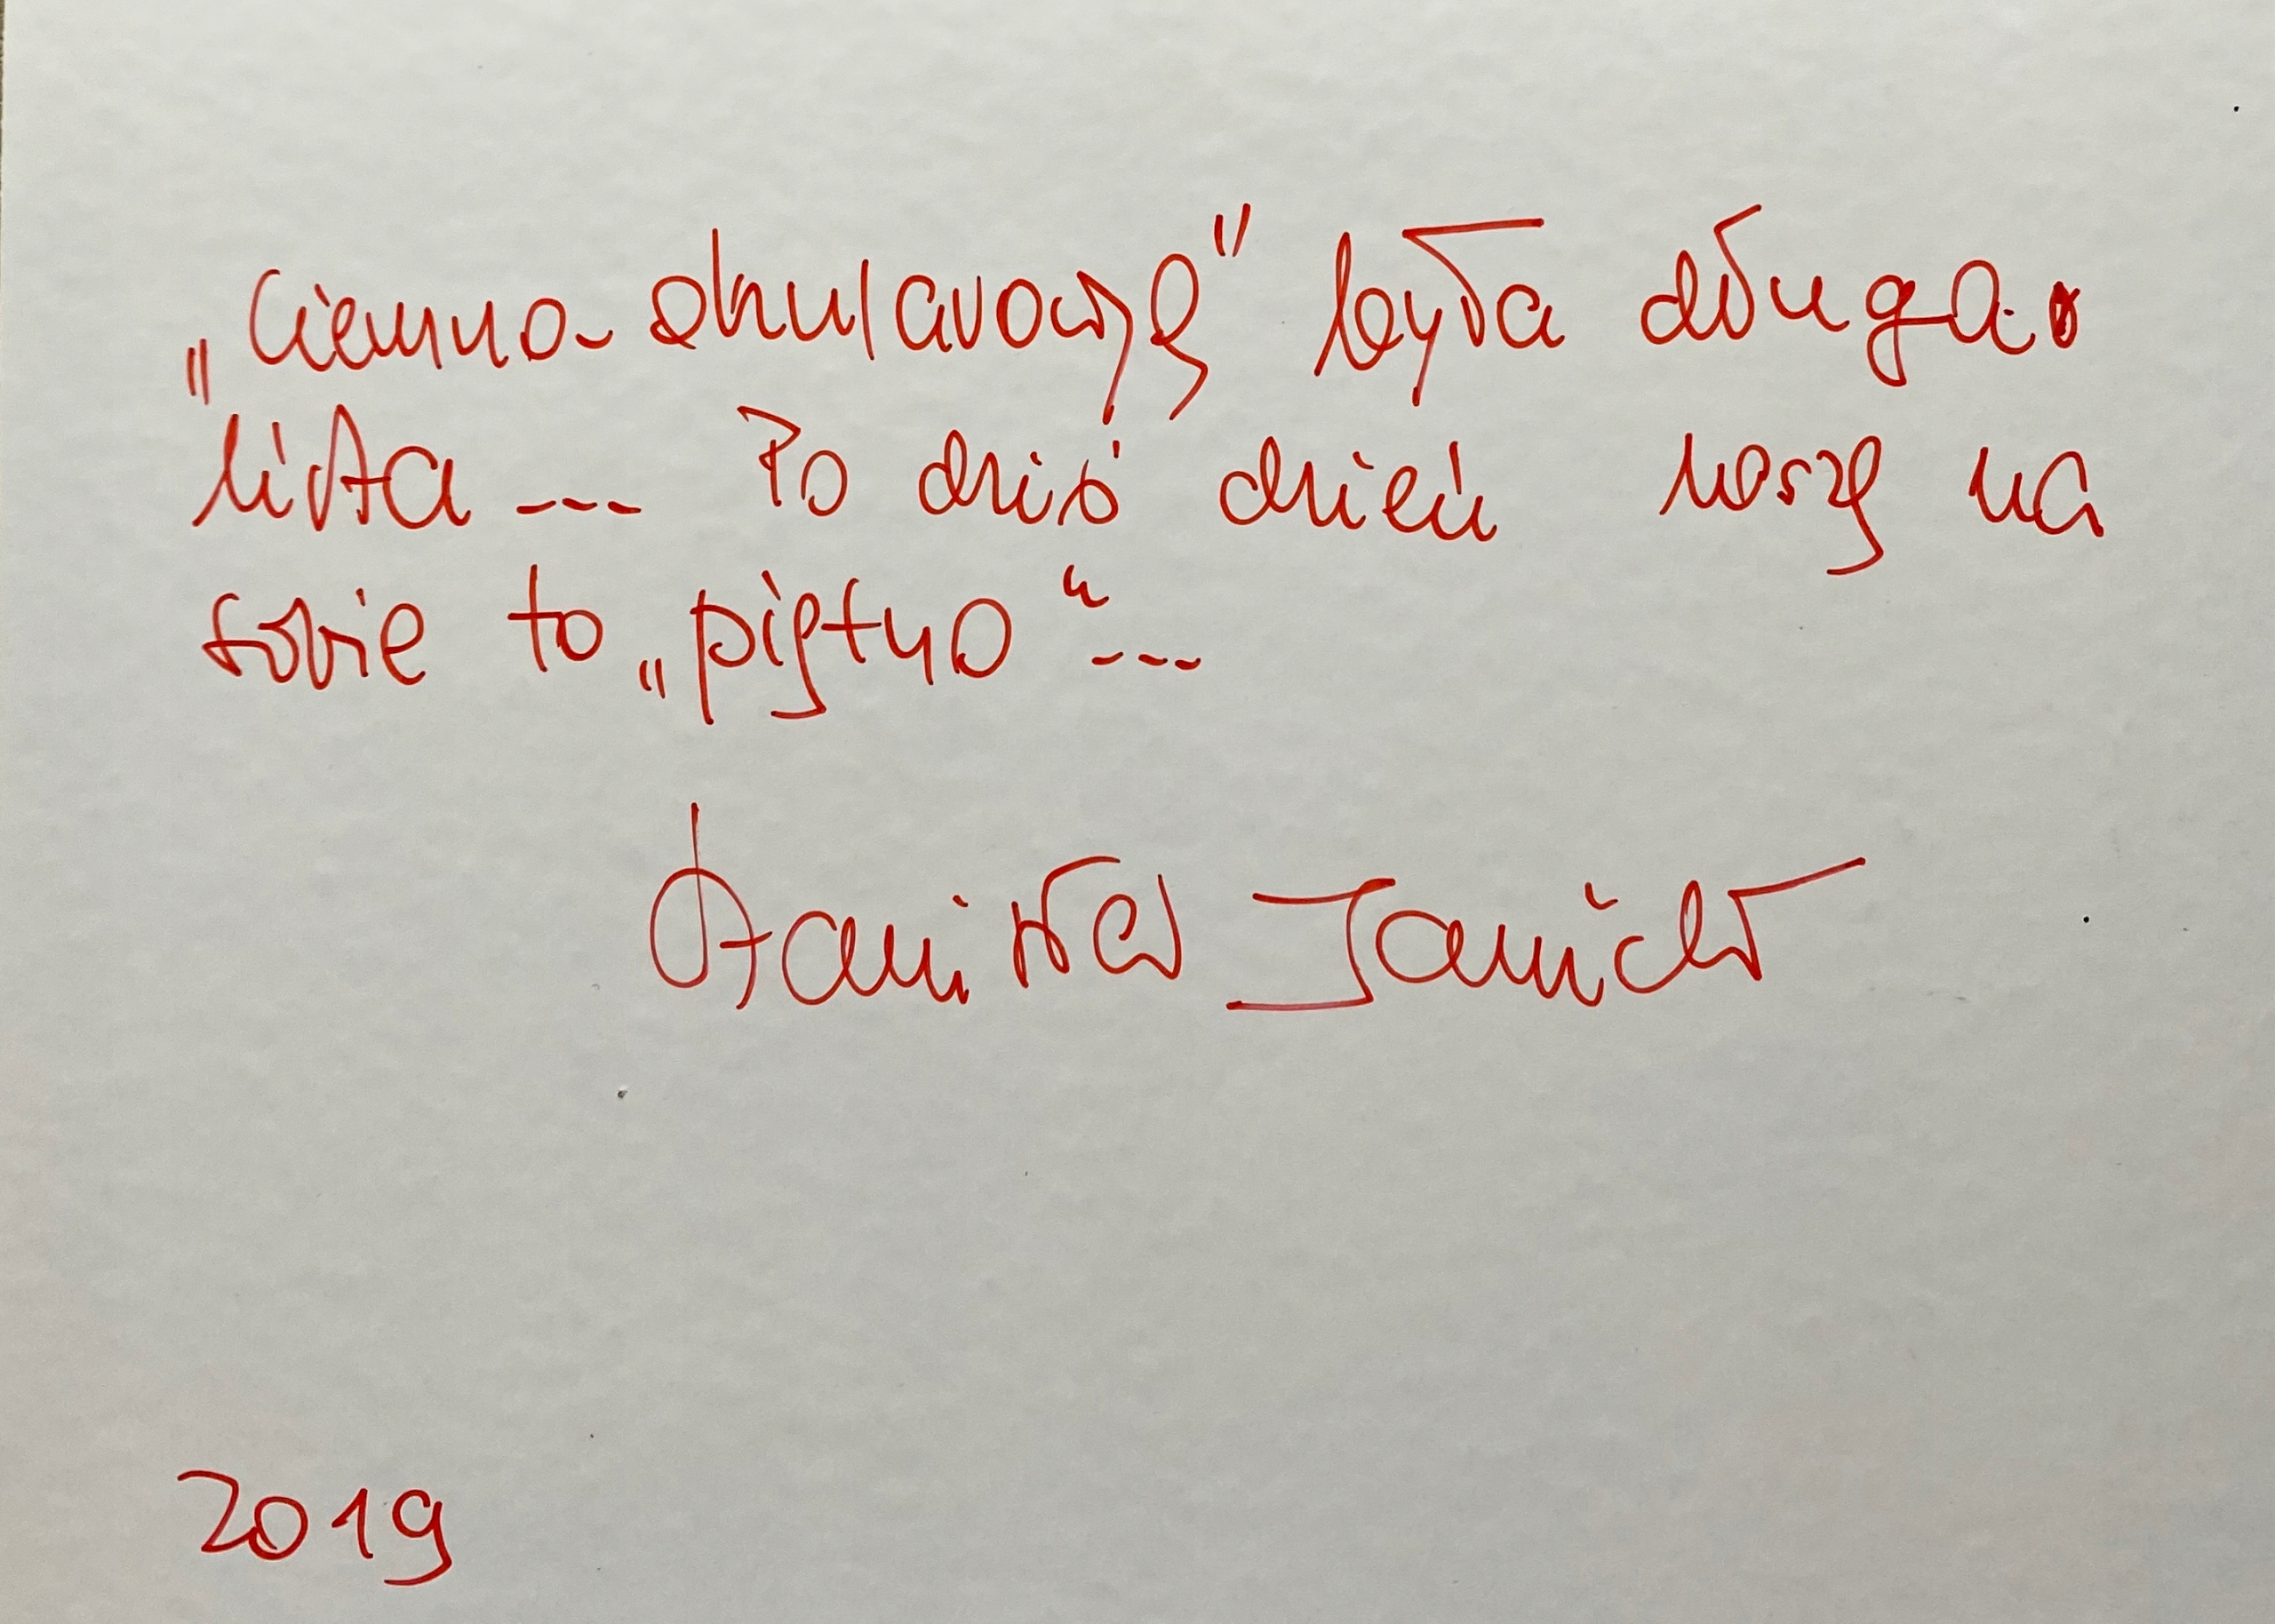 „Ciemno-okularowcze" była długa.
lista --- Po dziś dzień noszę na
sobie to „piętno" ---
Stanisław Janicki
2019